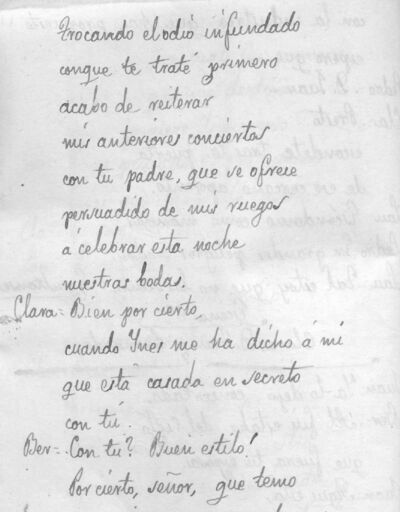 Trocando el odio infundado
conque te traté primero
acabo de reiterar
mis anteriores conciertos
con tu padre, que se ofrece
persuadido de mis ruegos
á celebrar esta noche
nuestras bodas.
Clara = Bien por cierto
cuando Ynes me ha dicho á mi
que está casada en secreto
con tú.
Ber = Con tu? Buen estilo!
Por cierto, señor, que temo